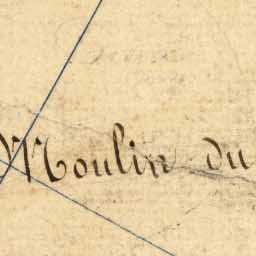 Moulin du